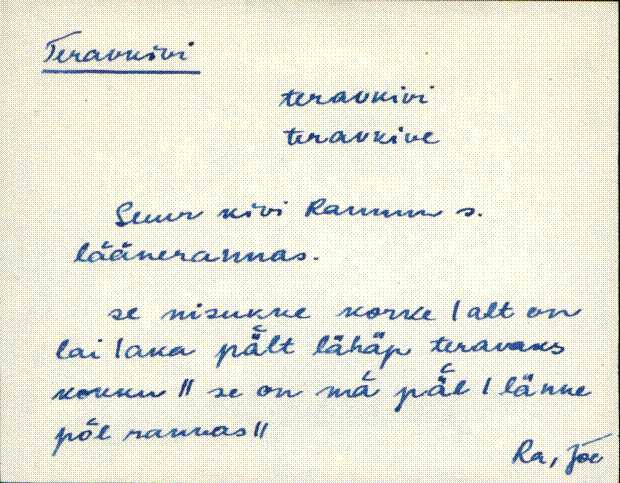 Teravkivi
teravkivi
teravkive
Suur kivi Rammu s.
läänerannas.
se nisukke korke | alt on
lai | aka pält lähäp teravaks
kokku || se on má päl | länne
pól rannas ||
Ra, Jõe